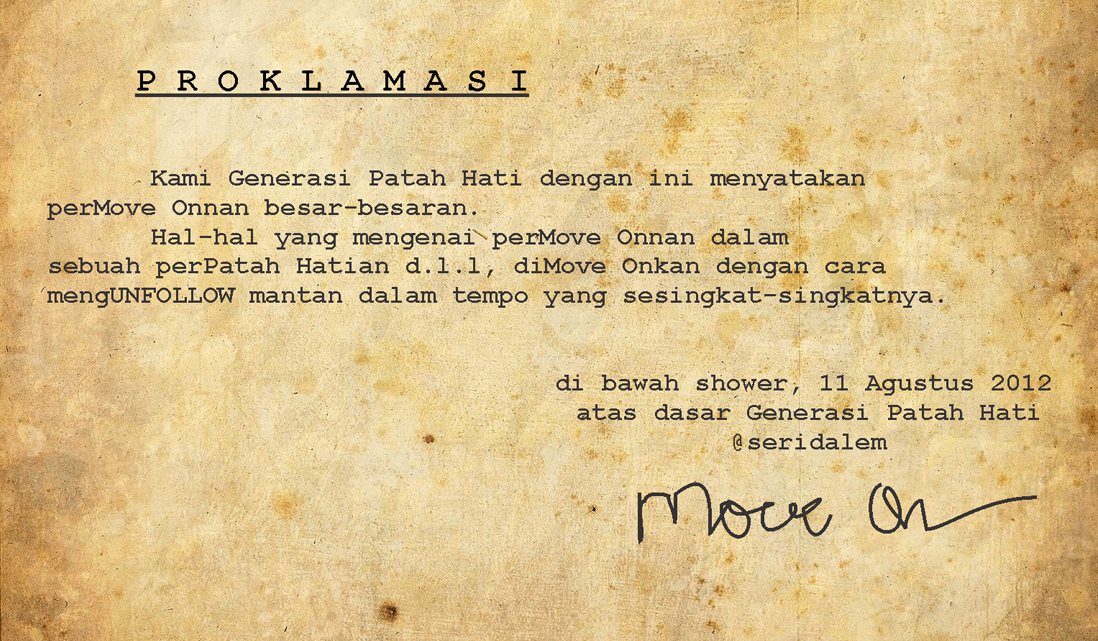 PROKLAMASI
Kami Generasi Patah Hati dengan ini menyatakan
perMove Onnan besar-besaran.
Hal-hal yang mengenai perMove Onnan dalam
sebuah perPatah Hatian d.l.l, diMove Onkan dengan cara
mengUNFOLLOW mantan dalam tempo yang sesingkat-singkatnya.
di bawah shower, 11 Agustus 2012
atas dasar Generasi Patah Hati
@seridalem
Move On